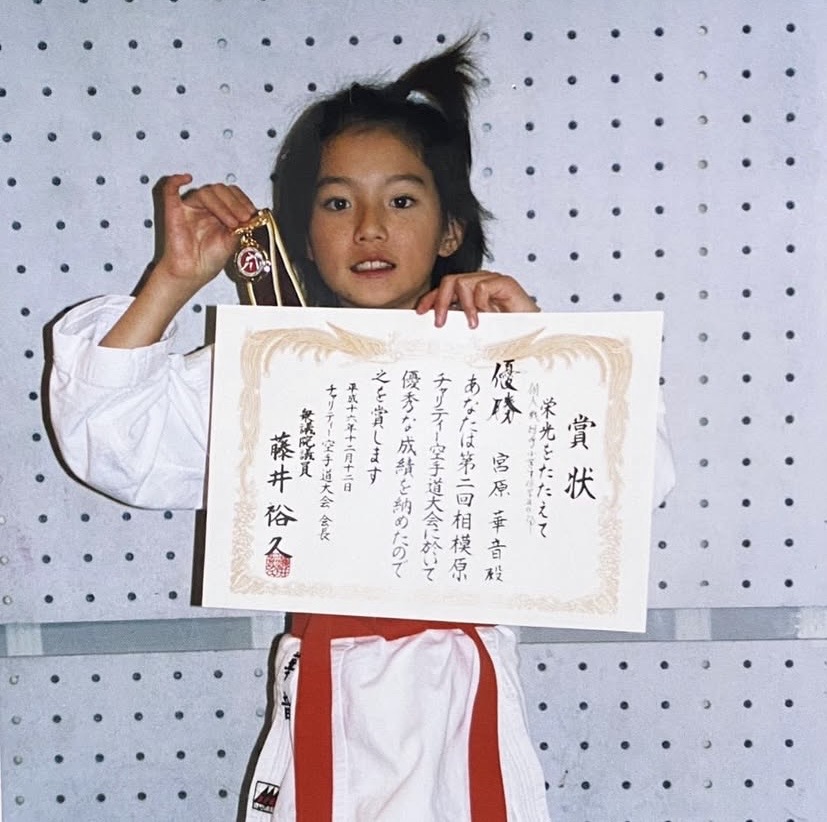 賞状
栄光をたたえて
優勝 宮原華音殿
あなたは第二回相模原
チャリティー空手道大会に於いて
優秀な成績を納めたので
之を賞します
平成十六年十二月十二日
チャリティー空手道大会 会長
衆議院議員
藤井裕久
華音